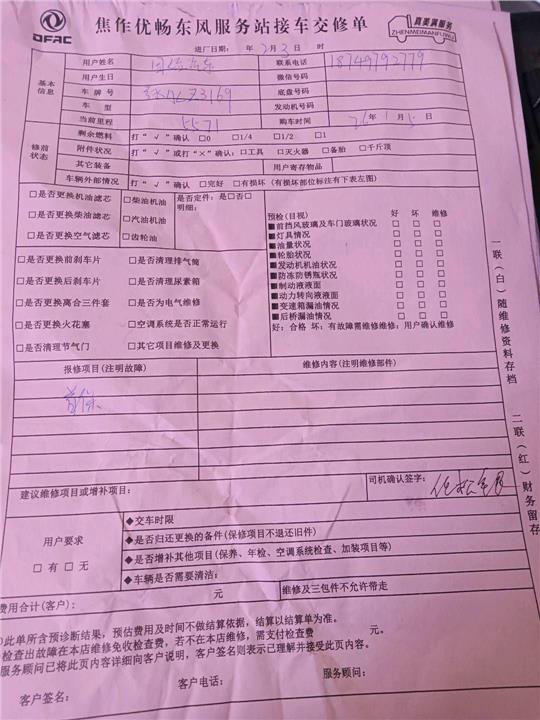 DFAC
焦作优畅东风服务站接车交修单
真美满服务
ZHENMEIMANFUWU
进厂日期： 年 2月3日 时
基本信息
用户姓名
联系电话 18749792779
用户生日
微信号码
车牌号
底盘号码
车型
发动机号码
当前里程 5571
购车时间 26年1月5
修前状态
剩余燃料 打“√”确认 □0 □1/4 □1/2 □1
附件状况 打“√”或打“×”确认：□工具 □灭火器 □备胎 □千斤顶
其它装备 用户寄存物品
车辆外部情况 打“√”确认 □完好 □有损坏（有损坏部位标注有下表左图）
□是否更换机油滤芯 □柴油机油 是否定件：是□否□
□是否更换柴油滤芯 □汽油机油 明细：
□是否更换空气滤芯 □齿轮油
□是否更换前刹车片 □是否清理排气筒
□是否更换后刹车片 □是否清理尿素箱
□是否更换离合三件套 □是否为电气维修
□是否更换火花塞 □空调系统是否正常运行
□是否清理节气门 □其它项目维修及更换
预检(目视) 好 坏 维修
■前挡风玻璃及车门玻璃状况 □ □ □
■灯具情况 □ □ □
■油量状况 □ □ □
■轮胎状况 □ □ □
■发动机机油状况 □ □ □
■防冻防锈瓶状况 □ □ □
■制动液液面 □ □ □
■动力转向液液面 □ □ □
■变速箱漏油情况 □ □ □
■后桥漏油情况 □ □ □
好：合格 坏：有故障需维修维修：用户确认维修
报修项目(注明故障) 维修内容(注明维修部件)
首保
建议维修项目或增补项目：
司机确认签字：
用户要求
□有 □无
◆交车时限
◆是否归还更换的备件(保修项目不退还旧件)
◆是否增补其他项目(保养、年检、空调系统检查、加装项目等)
◆车辆是否需要清洁：
费用合计(客户)： 元 维修及三包件不允许带走
)此单所含预诊断结果，预估费用及时间不做结算依据，结算以结算单为准。
检查出故障在本店维修免收检查费，若不在本店维修，需支付检查费 元。
服务顾问已将此页内容详细向客户说明，客户签名则表示已理解并接受此页内容。
客户签名： 客户电话： 服务顾问：
一联(白)随维修资料存档
二联(红)财务留存